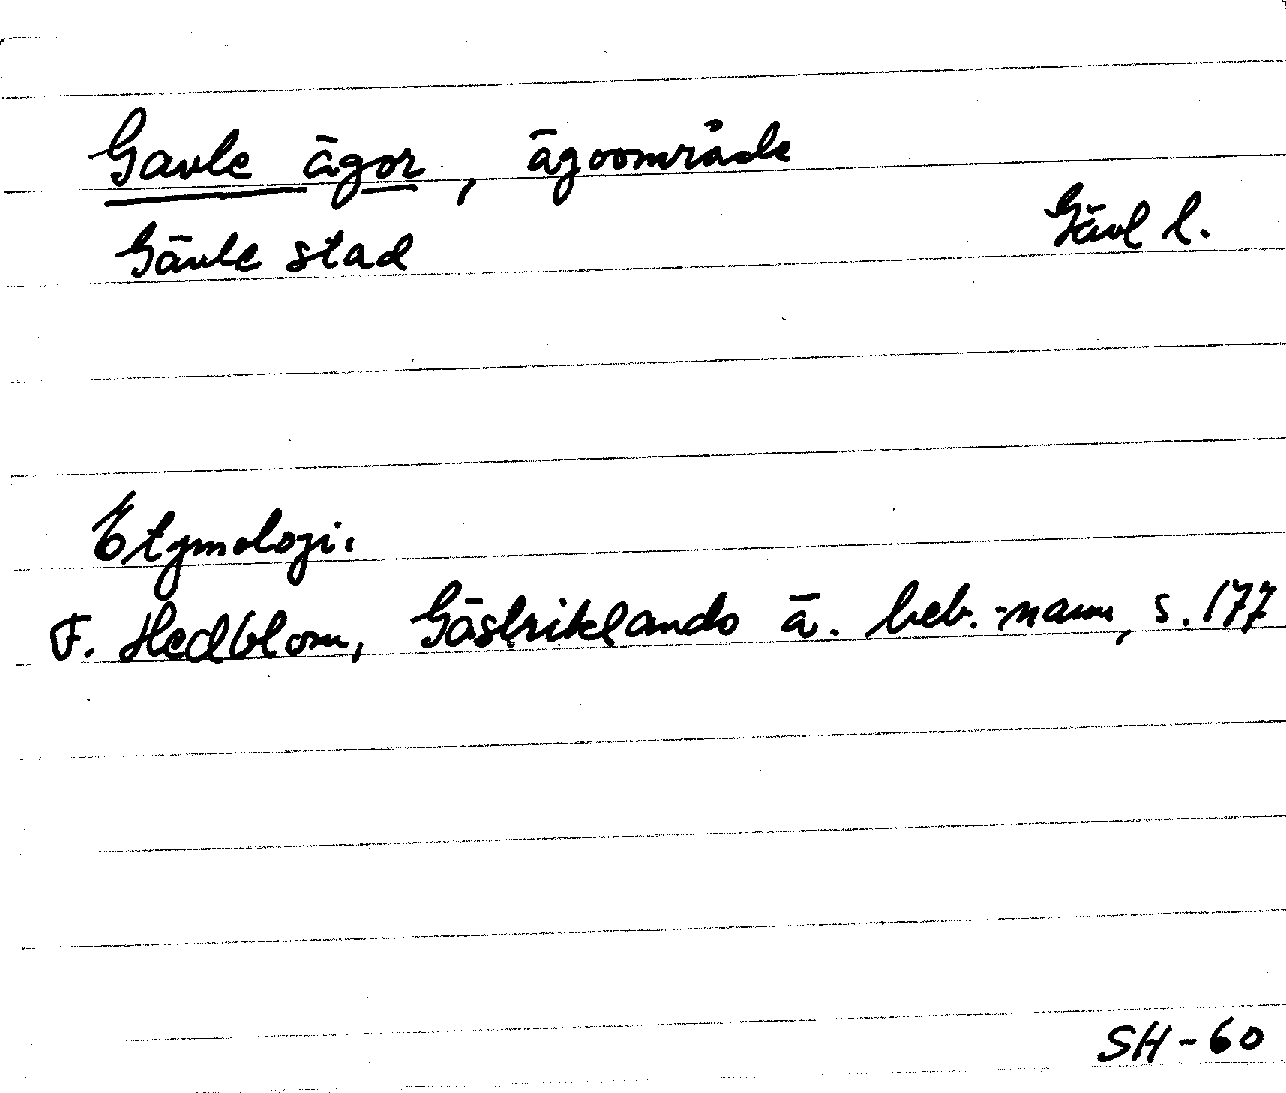 Gavle ägor, ägoområde
Gävle stad
Gävl l.
Etymologi.
F. Hedblom, Gästriklands ä. beb.-namn, s. 177
SH-60